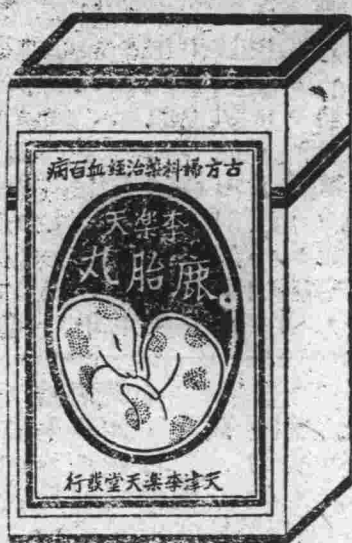 古方婦科藥治經血百病
李樂天
鹿胎丸
天津李樂天堂發行